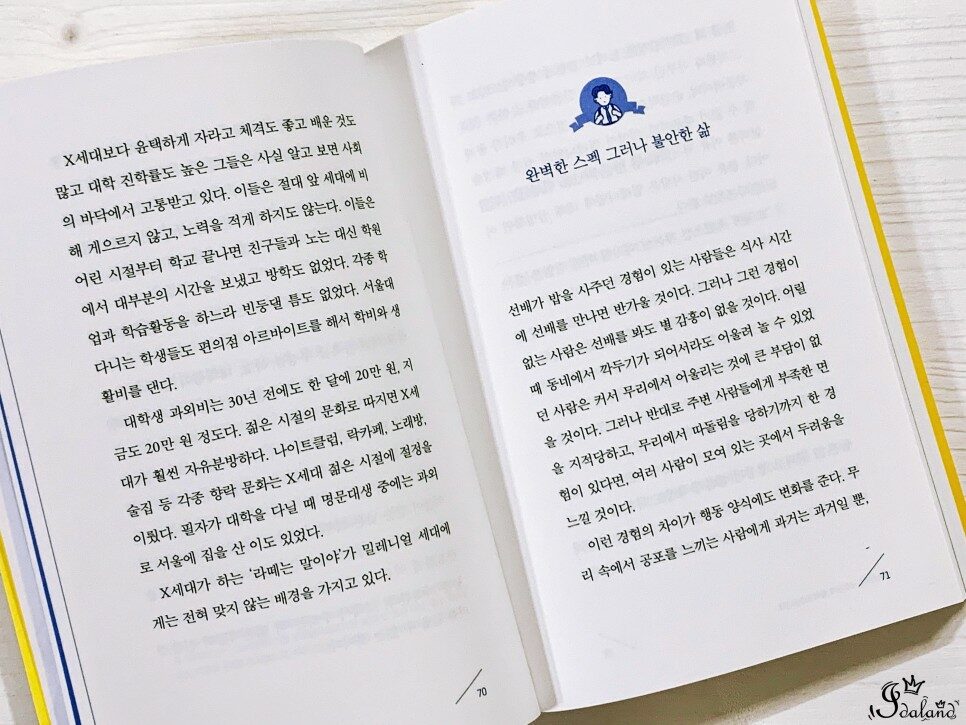 X세대보다 윤택하게 자라고 체격도 좋고 배운 것도
많고 대학 진학률도 높은 그들은 사실 알고 보면 사회
의 바닥에서 고통받고 있다. 이들은 절대 앞 세대에 비
해 게으르지 않고, 노력을 적게 하지도 않는다. 이들은
어린 시절부터 학교 끝나면 친구들과 노는 대신 학원
에서 대부분의 시간을 보냈고 방학도 없었다. 각종 학
업과 학습활동을 하느라 빈둥댈 틈도 없었다. 서울대
다니는 학생들도 편의점 아르바이트를 해서 학비와 생
활비를 댄다.
대학생 과외비는 30년 전에도 한 달에 20만 원, 지
금도 20만 원 정도다. 젊은 시절의 문화로 따지면 X세
대가 훨씬 자유분방하다. 나이트클럽, 락카페, 노래방,
술집 등 각종 향락 문화는 X세대 젊은 시절에 절정을
이뤘다. 필자가 대학을 다닐 때 명문대생 중에는 과외
로 서울에 집을 산 이도 있었다.
X세대가 하는 ‘라떼는 말이야’가 밀레니얼 세대에
게는 전혀 맞지 않는 배경을 가지고 있다.
70
완벽한 스펙 그러나 불안한 삶
선배가 밥을 사주던 경험이 있는 사람들은 식사 시간
에 선배를 만나면 반가울 것이다. 그러나 그런 경험이
없는 사람은 선배를 봐도 별 감흥이 없을 것이다. 어릴
때 동네에서 깍두기가 되어서라도 어울려 놀 수 있었
던 사람은 커서 무리에서 어울리는 것에 큰 부담이 없
을 것이다. 그러나 반대로 주변 사람들에게 부족한 면
을 지적당하고, 무리에서 따돌림을 당하기까지 한 경
험이 있다면, 여러 사람이 모여 있는 곳에서 두려움을
느낄 것이다.
이런 경험의 차이가 행동 양식에도 변화를 준다. 무
리 속에서 공포를 느끼는 사람에게 과거는 과거일 뿐,
71
Idaland